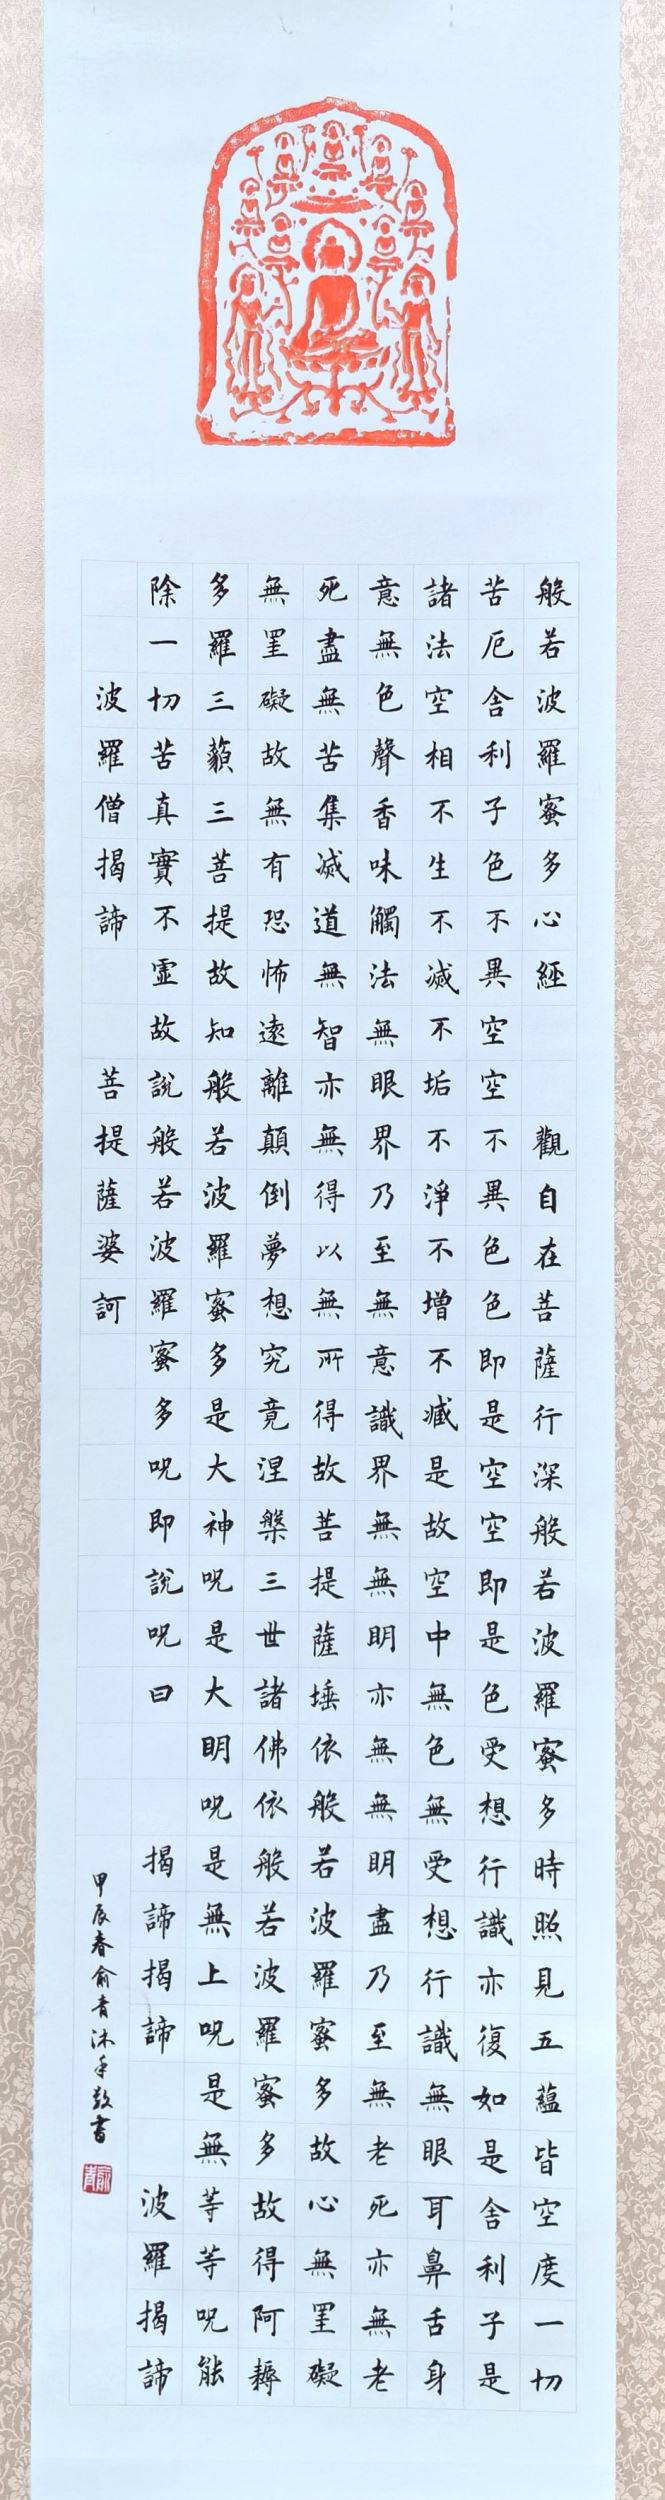 般若波羅蜜多心經 觀自在菩薩行深般若波羅蜜多時照見五蘊皆空度一切
苦厄舍利子色不異空空不異色色即是空空即是色受想行識亦復如是舍利子是
諸法空相不生不滅不垢不淨不增不減是故空中無色無受想行識無眼耳鼻舌身
意無色聲香味觸法無眼界乃至無意識界無無明亦無無明盡乃至無老死亦無老
死盡無苦集滅道無智亦無得以無所得故菩提薩埵依般若波羅蜜多故心無罣礙
無罣礙故無有恐怖遠離顛倒夢想究竟涅槃三世諸佛依般若波羅蜜多故得阿耨
多羅三藐三菩提故知般若波羅蜜多是大神呪是大明呪是無上呪是無等等呪能
除一切苦真實不虛故說般若波羅蜜多呪即說呪曰 揭諦揭諦 波羅揭諦
波羅僧揭諦 菩提薩婆訶
甲辰春俞青沐手敬書
俞青